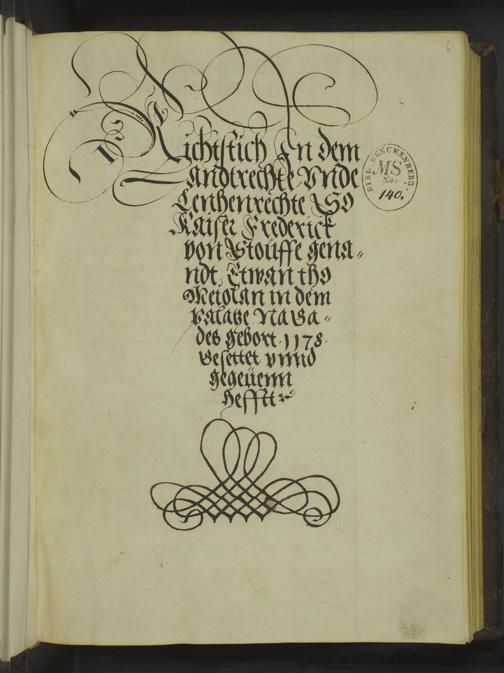 6
Richtstich In dem
Landtrechte Vnde
Lenhenrechte So
Kaiser Frederick
von Stouffe gena=
ndt, Etwan tho
Meiolan in dem
Palatze Na Ga=
des gebort 1178
Gesettet vnnd
gegeuenn
hefftt
BIBL. SENCKENBERG.
MS
No.
140.